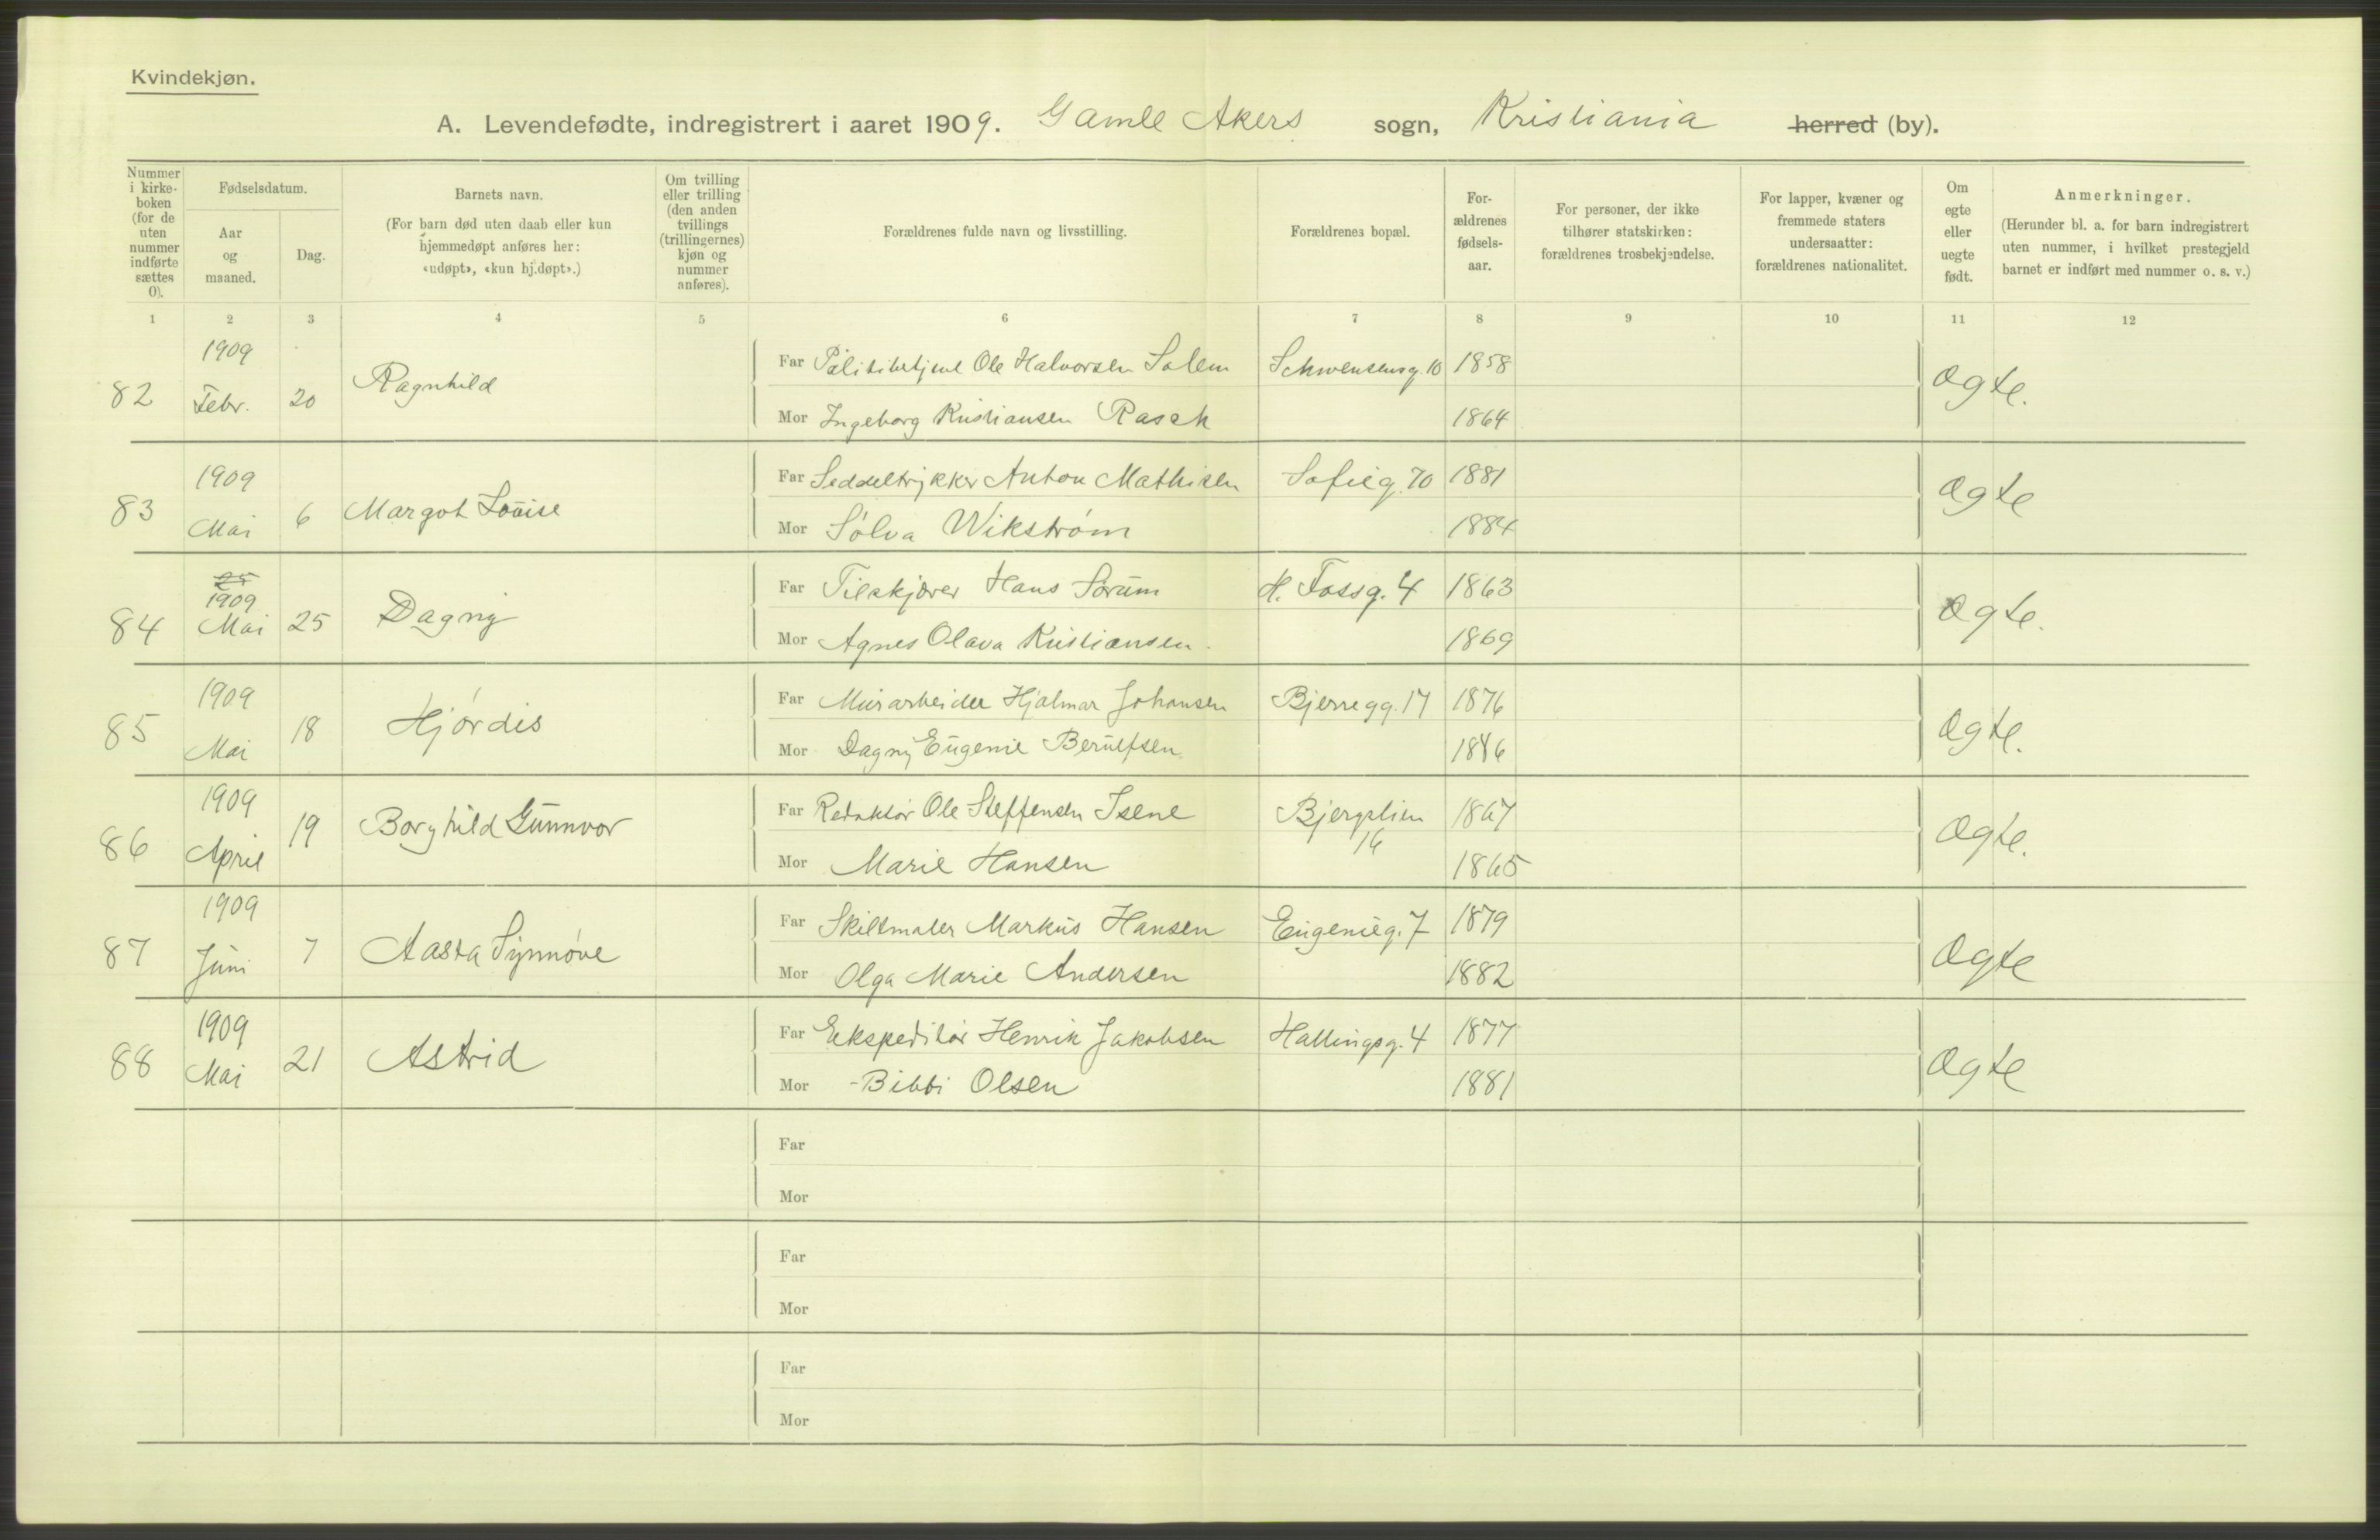 Kvindekjøn.
A. Levendefødte, indregistrert i aaret 1909. Gamle Akers sogn, Kristiania herred (by).
Nummer i kirke- boken (for de uten nummer indførte sættes 0).
Fødselsdatum.
Aar og maaned.
Dag.
Barnets navn.
(For barn død uten daab eller kun hjemmedøpt anføres her: «udøpt», «kun hj.døpt».)
Om tvilling eller trilling (den anden tvillings (trillingernes) kjøn og nummer anføres).
Forældrenes fulde navn og livsstilling.
Forældrenes bopæl.
For- ældrenes fødsels- aar.
For personer, der ikke tilhører statskirken: forældrenes trosbekjendelse.
For lapper, kvæner og fremmede staters undersaatter: forældrenes nationalitet.
Om egte eller uegte født.
Anmerkninger.
(Herunder bl. a. for barn indregistrert uten nummer, i hvilket prestegjeld barnet er indført med nummer o. s. v.)
1 2 3 4 5 6 7 8 9 10 11 12
82 1909 Febr. 20 Ragnhild
Far Politibetjent Ole Halvorsen Solem Schwensensg. 10 1858 Ægte.
Mor Ingeborg Kristiansen Rasch 1864
83 1909 Mai 6 Margot Louise
Far Seddeltrykker Anton Mathisen Sofieg. 70 1881 Ægte
Mor Sólva Wikstróm 1884
84 25 1909 Mai 25 Dagny
Far Tilskjærer Hans Sørum H. Fossg. 4 1863 Ægte.
Mor Agnes Olava Kristiansen. 1869
85 1909 Mai 18 Hjórdis
Far Murarbeider Hjalmar Johansen Bjerregg. 17 1876 Ægte.
Mor Dagny Eugenie Berulfsen. 1886
86 1909 April 19 Borghild Gunnvor
Far Redaktør Ole Steffensen Isene Bjergslien 16 1867 Ægte.
Mor Marie Hansen 1865
87 1909 Juni 7 Aasta Synnóve
Far Skiltmaler Markus Hansen Eugenieg. 7 1879 Ægte
Mor Olga Marie Andersen 1882
88 1909 Mai 21 Astrid
Far Ekspeditør Henrik Jakobsen Hallingsg. 4 1877 Ægte
Mor Bibbi Olsen 1881
Far
Mor
Far
Mor
Far
Mor